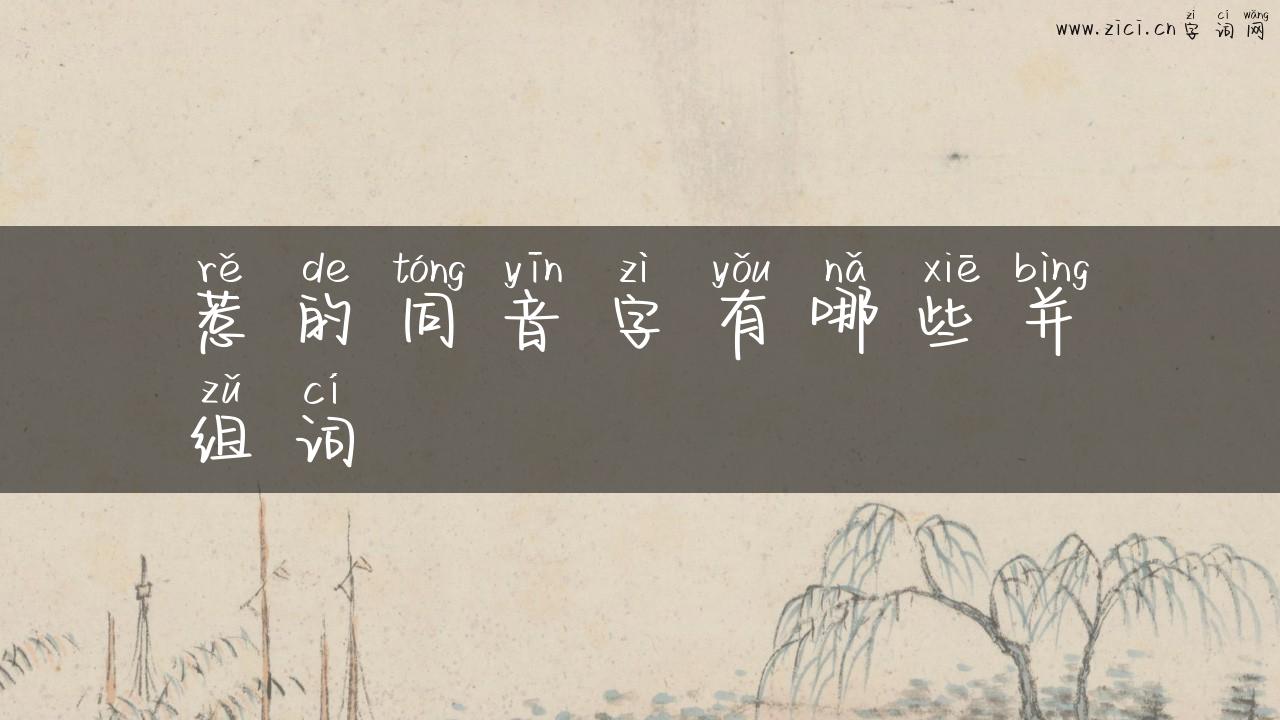 zì cí wǎng
www.zici.cn字词网
rě de tóng yīn zì yǒu nǎ xiē bìng
惹的同音字有哪些并
zǔ cí
组词